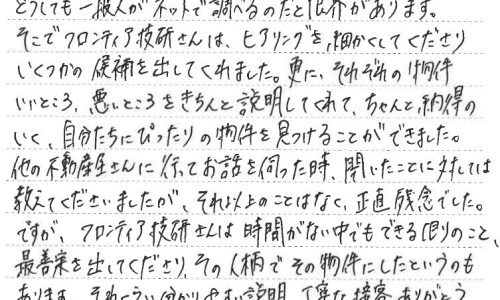 どうしても一般人がネットで調べるのだと限界があります。
そこでフロンティア技研さんは、ヒアリングを、細かくしてくださり
いくつかの候補を出してくれました。更に、それぞれの物件
いいところ、悪いところをきちんと説明してくれて、ちゃんと納得の
いく、自分たちにぴったりの物件を見つけることができました。
他の不動産屋さんに行ってお話を伺った時、聞いたことに対しては
教えてくださいましたが、それ以上のことはなく、正直残念でした。
ですが、フロンティア技研さんは時間がない中でもできる限りのこと、
最善策を出してくださり、その人柄でその物件にしたというのも
あります。それくらい分かりやすい説明、丁寧な接客、ありがとう